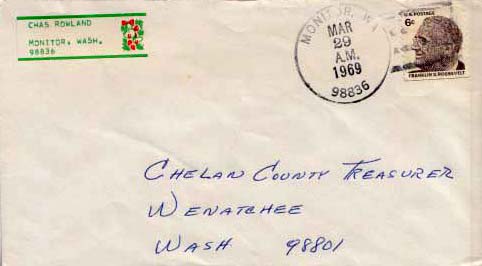 CHAS ROWLAND
MONITOR, WASH.
98836
MONITOR, WA
MAR
29
A.M.
1969
98836
U.S. POSTAGE
6¢
FRANKLIN D. ROOSEVELT
CHELAN COUNTY TREASURER
WENATCHEE
WASH 98801